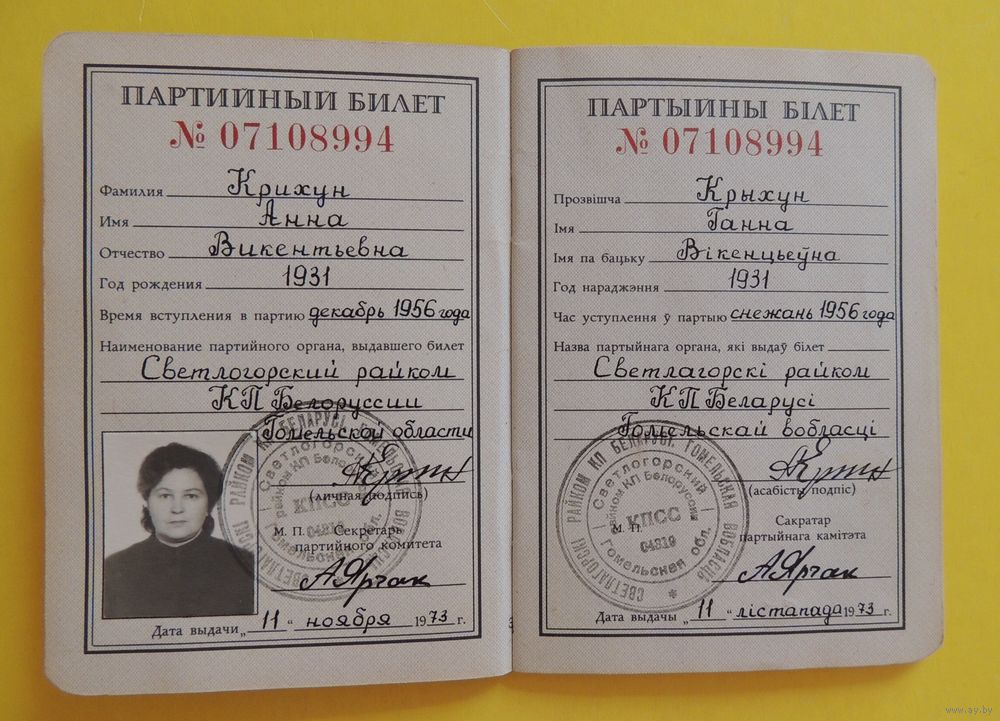 ПАРТИЙНЫЙ БИЛЕТ
№ 07108994
Фамилия Крихун
Имя Анна
Отчество Викентьевна
Год рождения 1931
Время вступления в партию декабрь 1956 года
Наименование партийного органа, выдавшего билет
Светлогорский райком
КП Белоруссии
Гомельской области
(личная подпись)
М. П. Секретарь
партийного комитета
Дата выдачи „ 11 “ ноября 1973 г.
СВЕТЛАГОРСКІ РАЙКОМ КП БЕЛАРУСІ, ГОМЕЛЬСКАЯ ВОБЛАСЦЬ
Светлогорский
райком КП Белоруссии
КПСС
04319
Гомельская обл.
ПАРТЫЙНЫ БІЛЕТ
№ 07108994
Прозвішча Крыхун
Імя Ганна
Імя па бацьку Вікенцьеўна
Год нараджэння 1931
Час уступлення ў партыю снежань 1956 года
Назва партыйнага органа, які выдаў білет
Светлагорскі райком
КП Беларусі
Гомельскай вобласці
(асабісты подпіс)
М. П. Сакратар
партыйнага камітэта
Дата выдачы „ 11 “ лістапада 1973 г.
СВЕТЛАГОРСКІ РАЙКОМ КП БЕЛАРУСІ, ГОМЕЛЬСКАЯ ВОБЛАСЦЬ
Светлогорский
райком КП Белоруссии
КПСС
04319
Гомельская обл.
3
www.ay.by